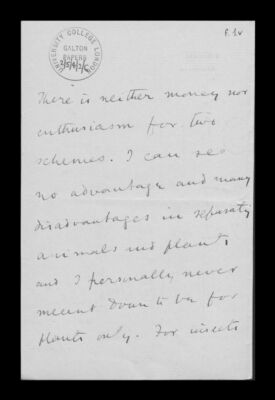 f. 1v
UNIVERSITY COLLEGE LONDON
GALTON
PAPERS
There is neither money nor
enthusiasm for two
schemes. I can see
no advantage and many
disadvantages in separating
animals and plants
and I personally never
meant Down to be for
plants only. For insects